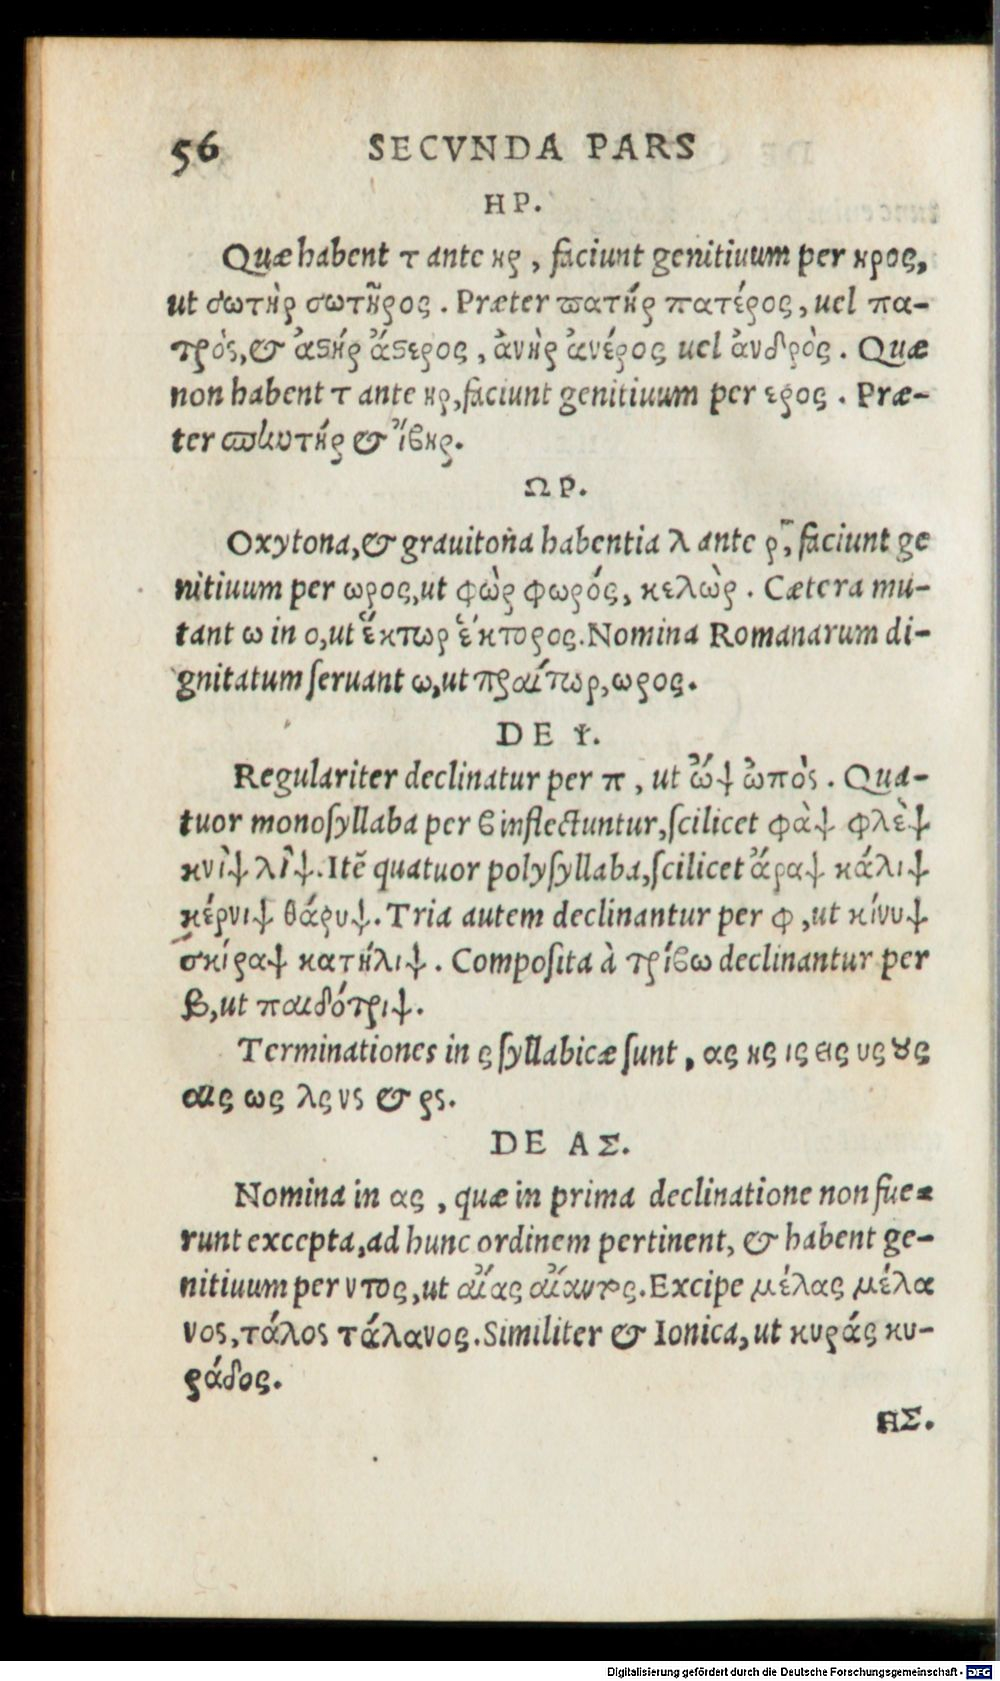 56 SECVNDA PARS
ΗΡ.
Quæ habent τ ante ηρ, faciunt genitiuum per ηρος,
ut σωτὴρ σωτῆρος. Præter πατήρ πατέρος, uel πα-
τρὸς, & ἀστήρ ἄστερος, ἀνὴρ ἀνέρος uel ἀνδρὸς. Quæ
non habent τ ante ηρ, faciunt genitiuum per ερος. Præ-
ter & ἴβηρ.
ΩΡ.
Oxytona, & grauitona habentia λ ante ρ, faciunt ge
nitiuum per ωρος, ut φὼρ φωρός, κελὼρ. Cætera mu-
tant ω in ο, ut ἕκτωρ ἕκτορος. Nomina Romanarum di-
gnitatum ſeruant ω, ut πραίτωρ, ωρος.
DE Ψ.
Regulariter declinatur per π, ut ὤψ ὠπὸς. Qua-
tuor monoſyllaba per β inflectuntur, ſcilicet φὰψ φλὲψ
κνὶψ λὶψ. Itē quatuor polyſyllaba, ſcilicet ἄραψ κάλιψ
κέρνιψ θάρυψ. Tria autem declinantur per φ, ut κίνυψ
σκίραψ κατήλιψ. Compoſita à τρίβω declinantur per
β, ut παιδότριψ.
Terminationes in ς ſyllabicæ ſunt, ας ης ις εις υς ους
αις ως λς νς & ρς.
DE ΑΣ.
Nomina in ας, quæ in prima declinatione non fue-
runt excepta, ad hunc ordinem pertinent, & habent ge-
nitiuum per ντος, ut αἴας αἴαντος. Excipe μέλας μέλα
νος, τάλος τάλανος. Similiter & Ionica, ut κυράς κυ-
ράδος.
ΗΣ.
Digitalisierung gefördert durch die Deutsche Forschungsgemeinschaft - DFG